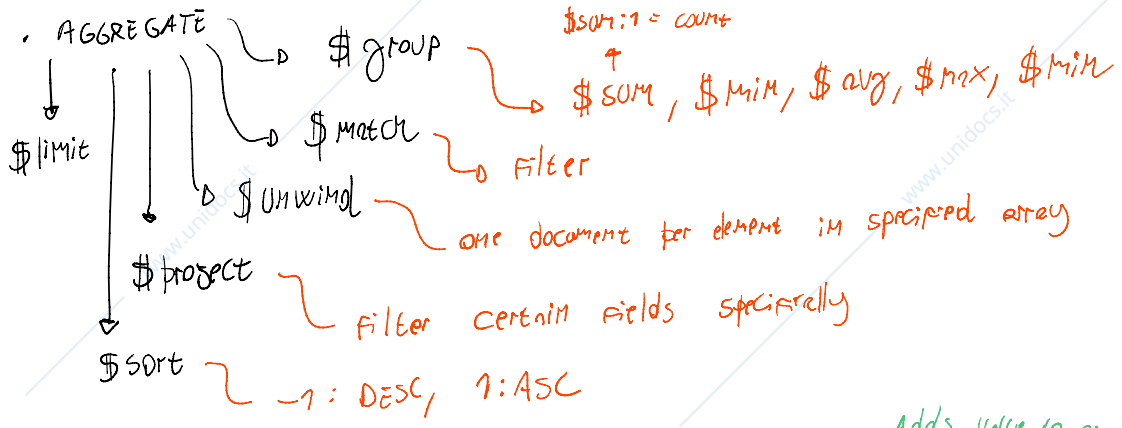 $sum:1 = count
. AGGREGATE
$group
$sum, $min, $avg, $max, $min
$match
filter
$limit
$unwind
one document per element in specified array
$project
filter certain fields specifically
$sort
-1: DESC, 1:ASC
Adds
www.unidocs.it
www.unidocs.it